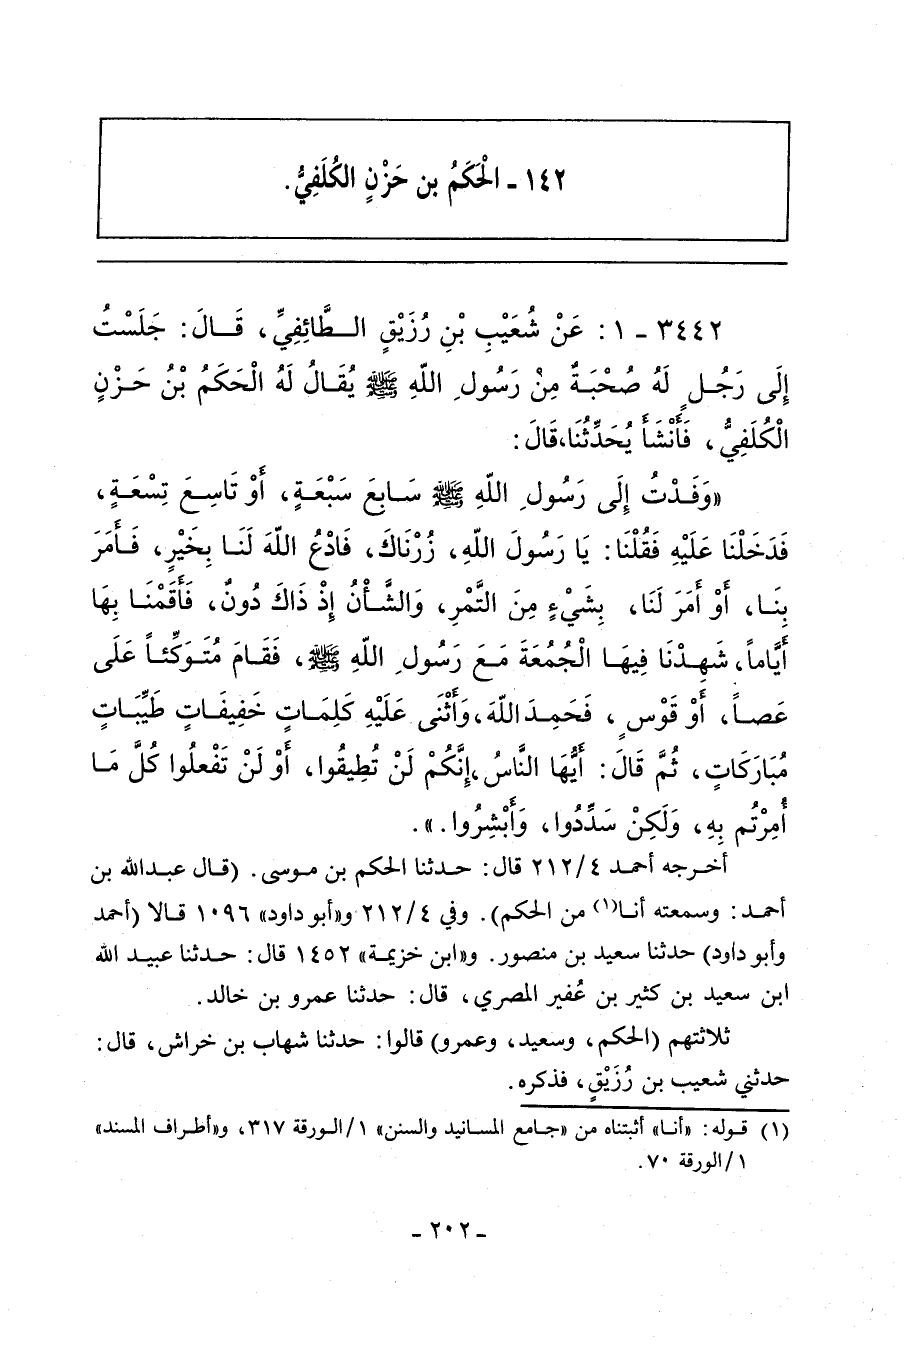 ١٤٢ - الْحَكَمُ بن حَزْنٍ الكُلَفِيُّ.
٣٤٤٢ - ١: عَنْ شُعَيْبِ بْنِ رُزَيْقٍ الطَّائِفِيِّ، قَالَ: جَلَسْتُ
إِلَى رَجُلٍ لَهُ صُحْبَةٌ مِنْ رَسُولِ اللّهِ ﷺ يُقَالُ لَهُ الْحَكَمُ بْنُ حَزْنٍ
الْكُلَفِيُّ، فَأَنْشَأَ يُحَدِّثُنَا،قَالَ:
«وَفَدْتُ إِلَى رَسُولِ اللّهِ ﷺ سَابِعَ سَبْعَةٍ، أَوْ تَاسِعَ تِسْعَةٍ،
فَدَخَلْنَا عَلَيْهِ فَقُلْنَا: يَا رَسُولَ اللّهِ، زُرْنَاكَ، فَادْعُ اللّهَ لَنَا بِخَيْرٍ، فَأَمَرَ
بِنَا، أَوْ أَمَرَ لَنَا، بِشَيْءٍ مِنَ التَّمْرِ، وَالشَّأْنُ إِذْ ذَاكَ دُونٌ، فَأَقَمْنَا بِهَا
أَيَّاماً، شَهِدْنَا فِيهَا الْجُمُعَةَ مَعَ رَسُولِ اللّهِ ﷺ، فَقَامَ مُتَوَكِّئاً عَلَى
عَصاً، أَوْ قَوْسٍ، فَحَمِدَ اللّهَ،وَأَثْنَى عَلَيْهِ كَلِمَاتٍ خَفِيفَاتٍ طَيِّبَاتٍ
مُبَارَكَاتٍ، ثُمَّ قَالَ: أَيُّهَا النَّاسُ،إِنَّكُمْ لَنْ تُطِيقُوا، أَوْ لَنْ تَفْعلُوا كُلَّ مَا
أُمِرْتُم بِهِ، وَلَكِنْ سَدِّدُوا، وَأَبْشِرُوا.».
أخرجه أحمد ٢١٢/٤ قال: حدثنا الحكم بن موسى. (قال عبدالله بن
أحمد: وسمعته أنا(١) من الحكم). وفي ٢١٢/٤ و«أبو داود» ١٠٩٦ قالا (أحمد
وأبو داود) حدثنا سعيد بن منصور. و«ابن خزيمة» ١٤٥٢ قال: حدثنا عبيد الله
ابن سعيد بن كثير بن عُفير المصري، قال: حدثنا عمرو بن خالد.
ثلاثتهم (الحكم، وسعيد، وعمرو) قالوا: حدثنا شهاب بن خراش، قال:
حدثني شعيب بن رُزَيْقٍ، فذكره.
(١) قوله: «أنا» أثبتناه من «جامع المسانيد والسنن» ١/الورقة ٣١٧، و«أطراف المسند»
١/الورقة ٧٠.
- ٢٠٢ -